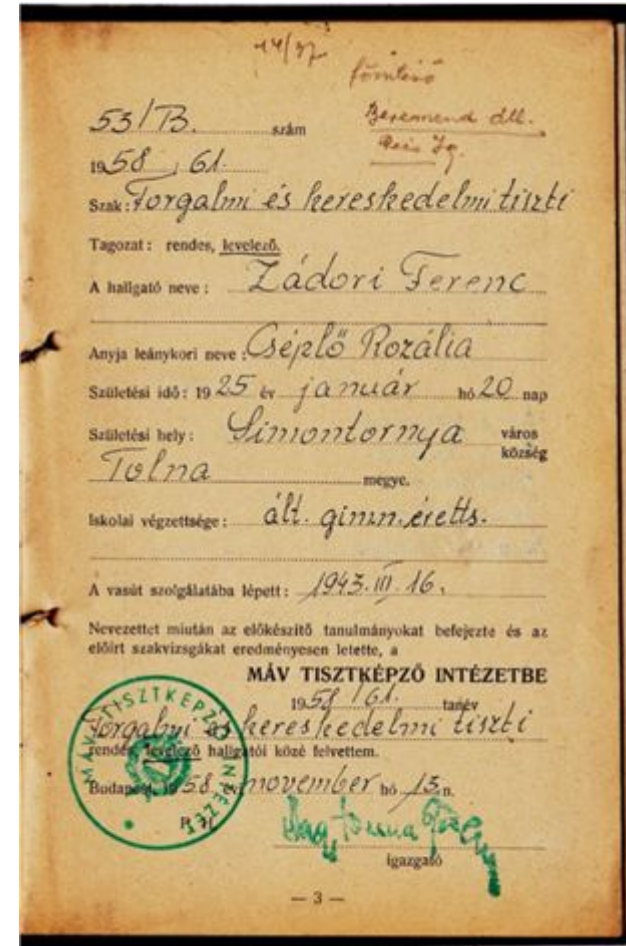 14/37
főintéző
53/B. szám
Beremend áll.
1958, 61.
Szak: Forgalmi és kereskedelmi tiszti
Tagozat: rendes, levelező.
A hallgató neve: Zádori Ferenc
Anyja leánykori neve: Cséplő Rozália
Születési idő: 1925 év január hó 20 nap
Születési hely: Simontornya város
község
Tolna megye.
Iskolai végzettsége: ált. gimn. éretts.
A vasút szolgálatába lépett: 1943. III. 16.
Nevezettet miután az előkészítő tanulmányokat befejezte és az
előirt szakvizsgákat eredményesen letette, a
MÁV TISZTKÉPZŐ INTÉZETBE
1958/61. tanév
Forgalmi és kereskedelmi tiszti
rendes, levelező hallgatói közé felvettem.
Budapest, 1958. év november hó 13. n.
P. H.
MÁV TISZTKÉPZŐ INTÉZET
igazgató
— 3 —